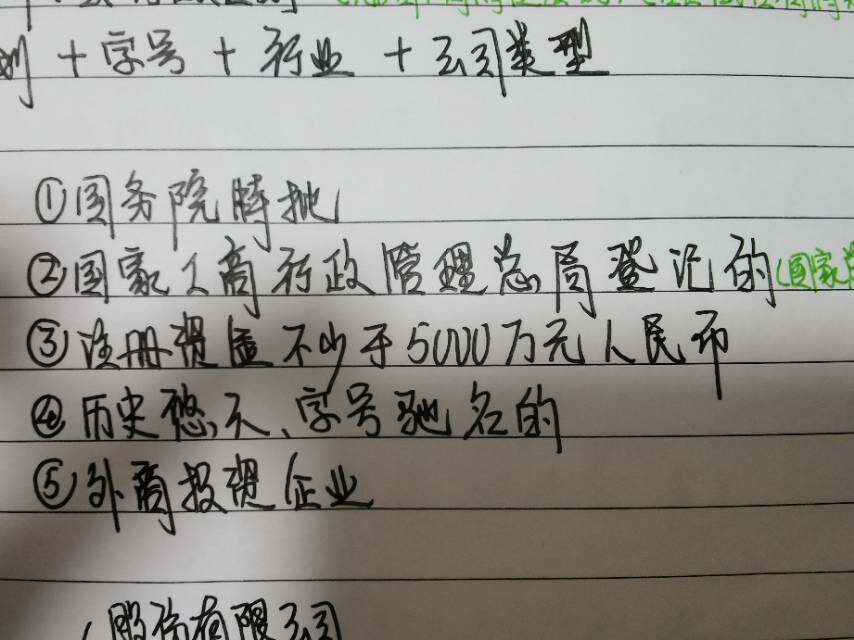 划 + 字号 + 行业 + 公司类型
①国务院特批
②国家工商行政管理总局登记的(国家
③注册资金不少于5000万元人民币
④历史悠久、字号驰名的
⑤外商投资企业
(股份有限公司